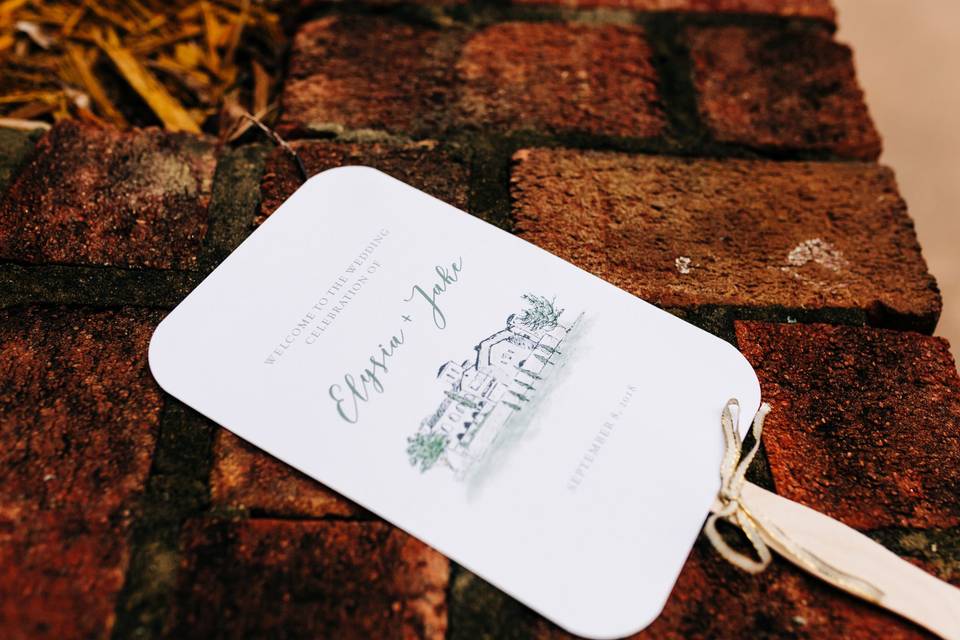 WELCOME TO THE WEDDING
CELEBRATION OF
Elysia + Jake
SEPTEMBER 8, 2018